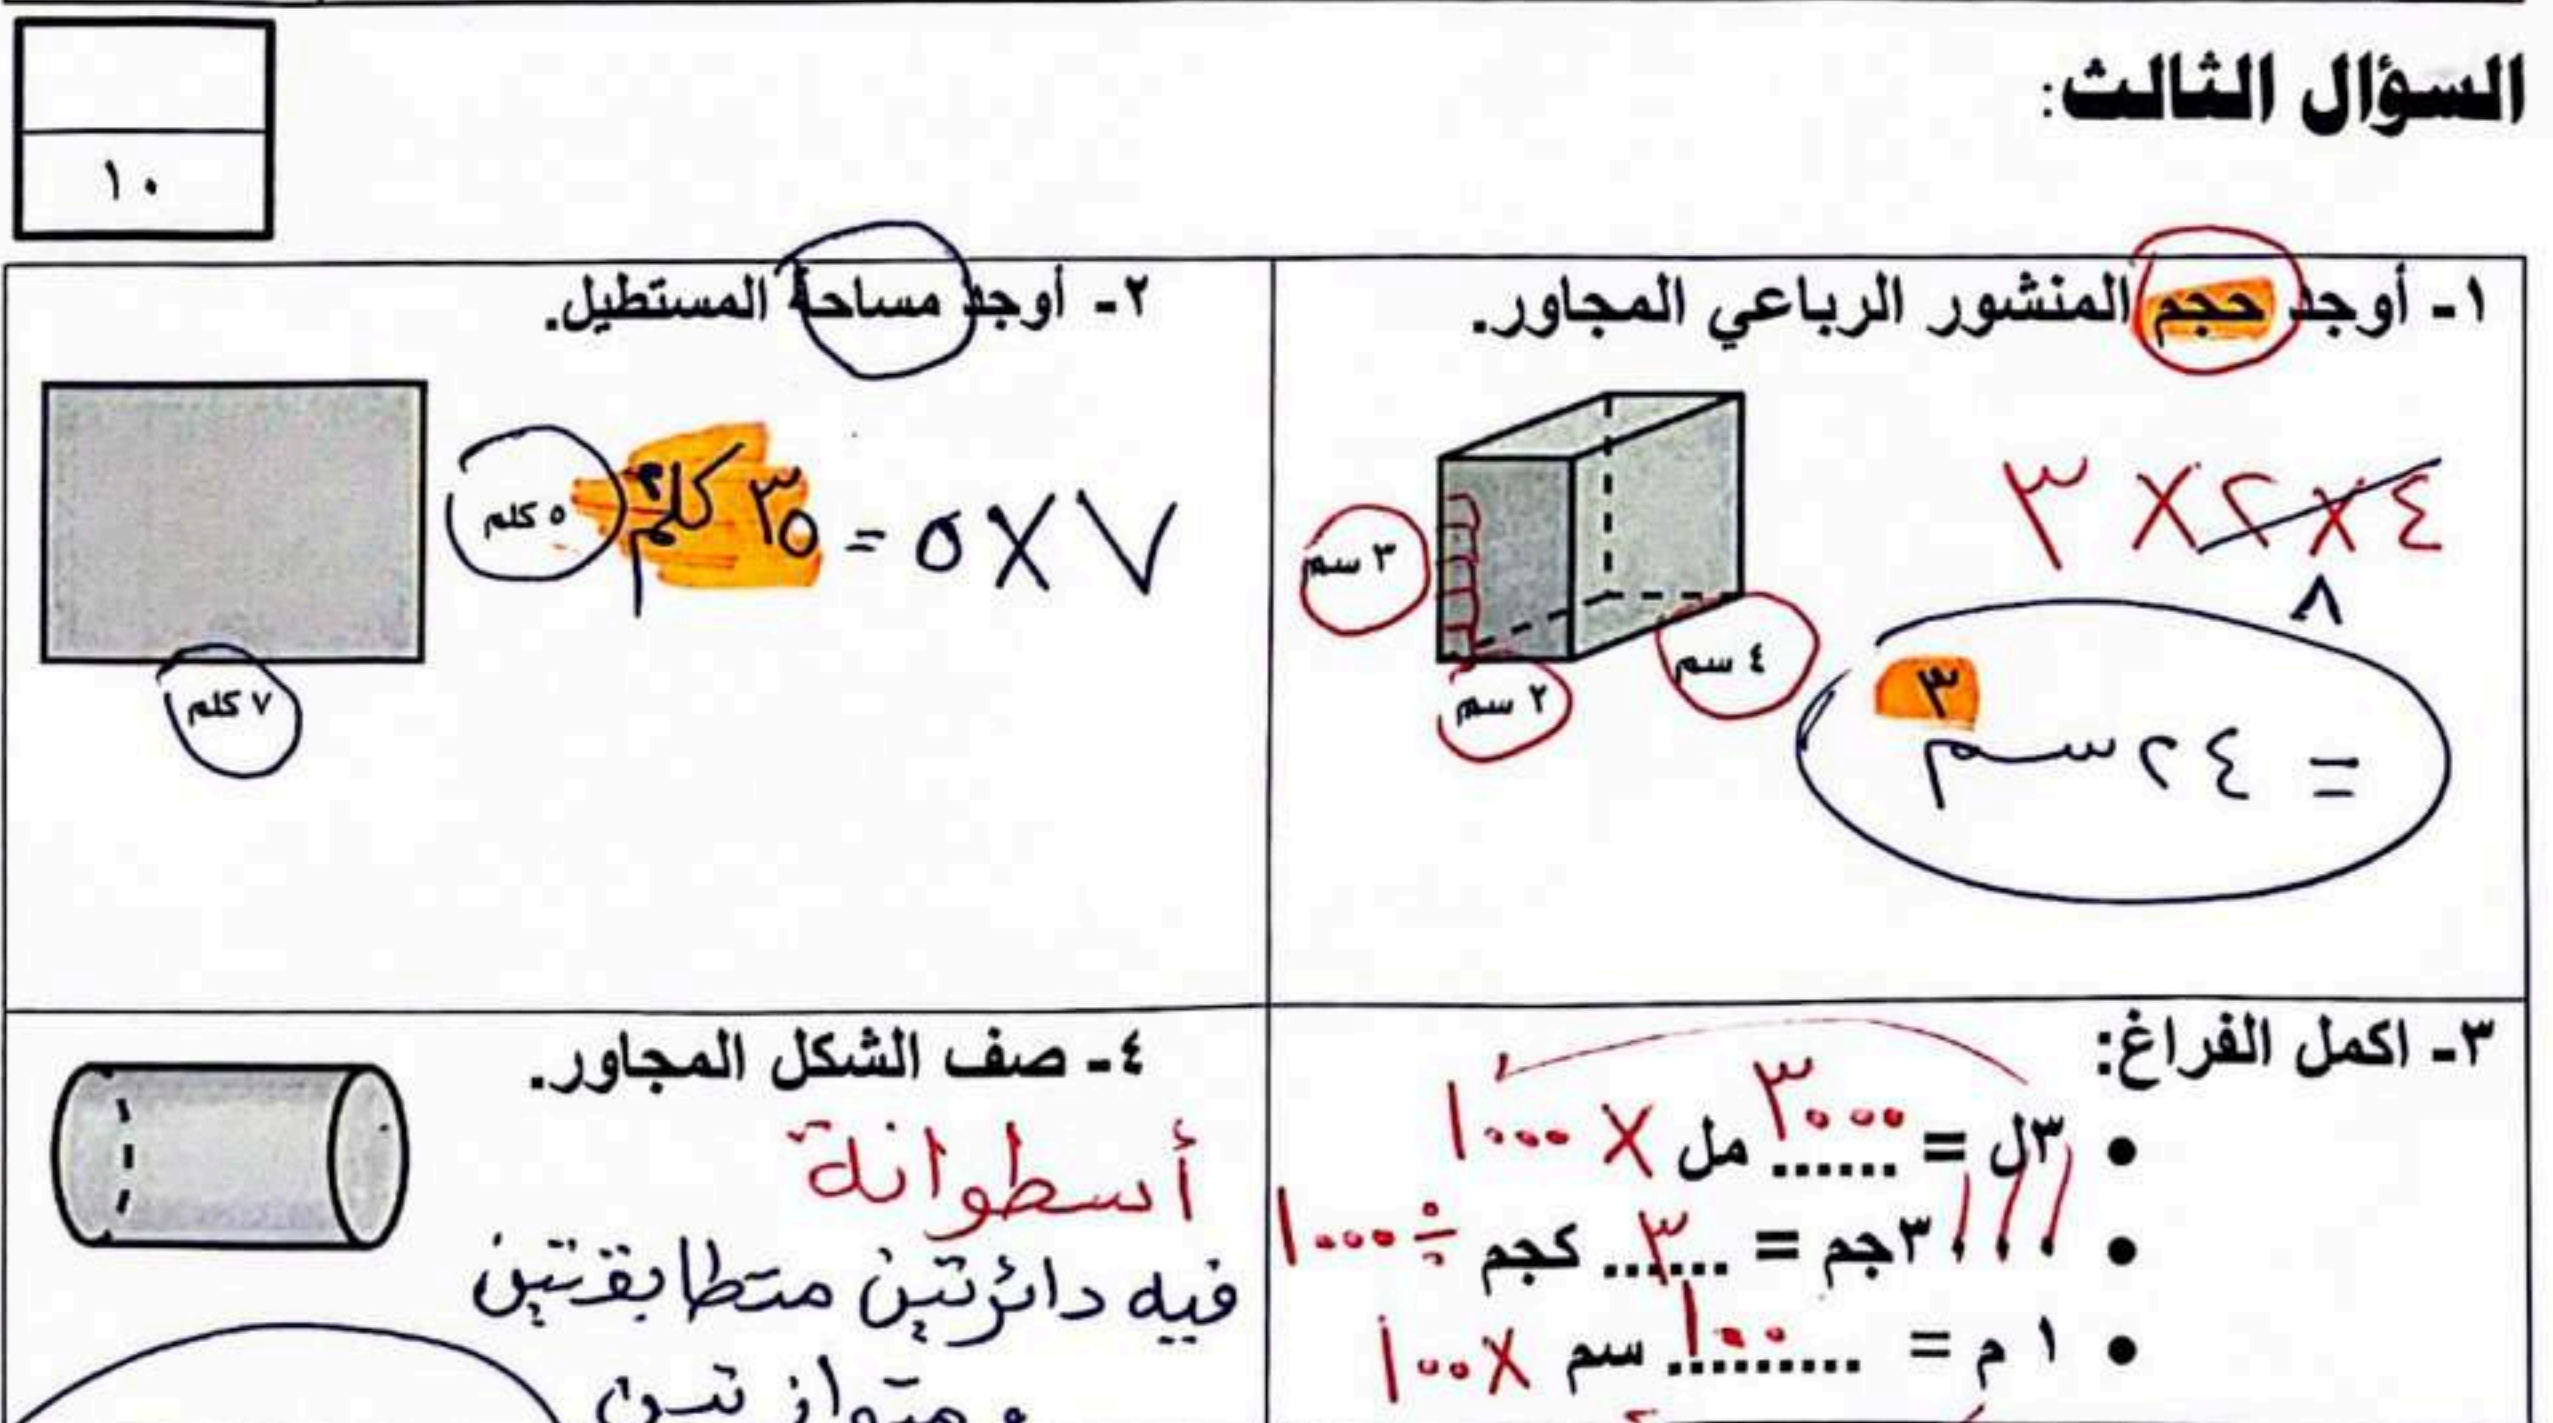 السؤال الثالث:
١٠
١- أوجد حجم المنشور الرباعي المجاور.
٤ × ٢ × ٣
٨
= ٢٤ سم٣
٣ سم
٢ سم
٤ سم
٢- أوجد مساحة المستطيل.
٧ × ٥ = ٣٥ كلم٢
٥ كلم
٧ كلم
٣- اكمل الفراغ:
• ٣ل = ...٣٠٠٠... مل × ١٠٠٠
• ٣٠٠٠جم = ...٣... كجم ÷ ١٠٠٠
• ١ م = ...١٠٠... سم × ١٠٠
٤- صف الشكل المجاور.
أسطوانة
فيه دائرتين متطابقتين
و متوازتين